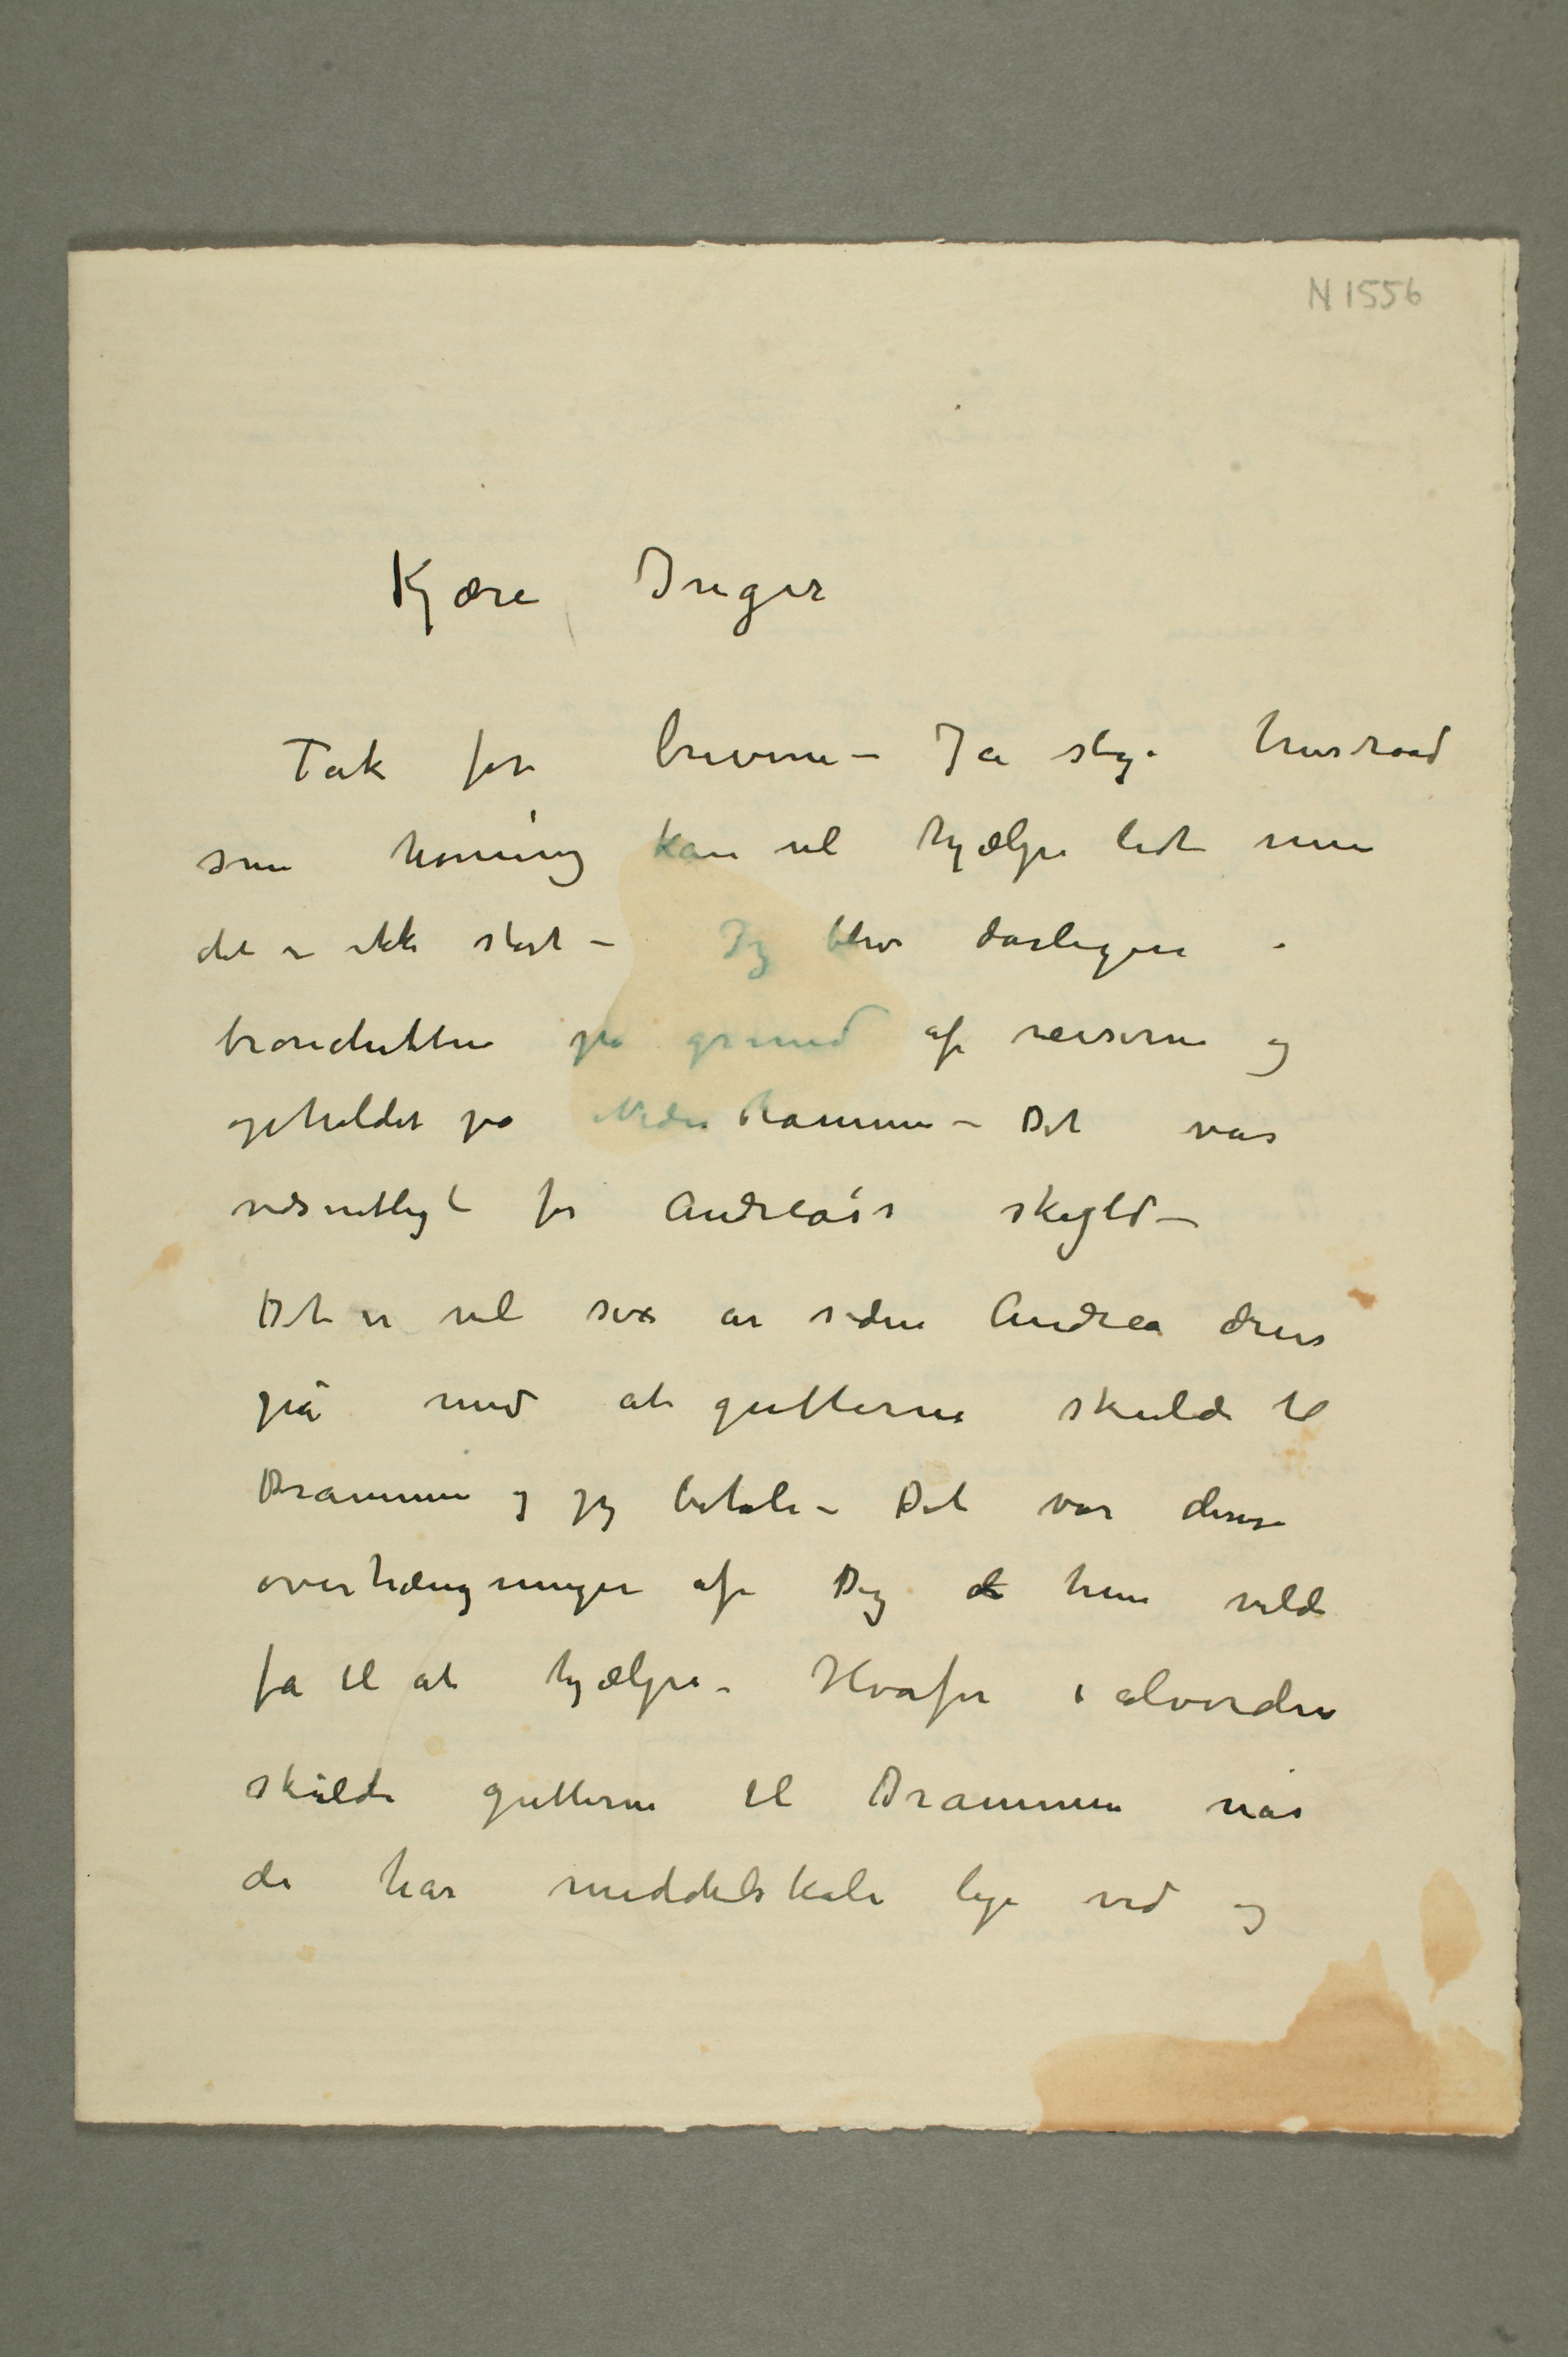 N 1556
Kjære Inger
Tak for brevene – Ja slige husraad
som honning kan vel hjælpe lidt men
det er ikke stort – Jeg blev dårligere i
bronchitten på grund af reiserne og
opholdet på Nedre Ramme – Det var
væsentligt for Andreas's skyld –
Det er vel sex år siden Andrea drev
på med at gutterne skulde til
Drammen og jeg betale – Det var disse
overhængninger af Dig de hun vilde
få til at hjælpe – Hvorfor i alverden
skulde gutterne til Drammen når
de har middelskole lige ved og